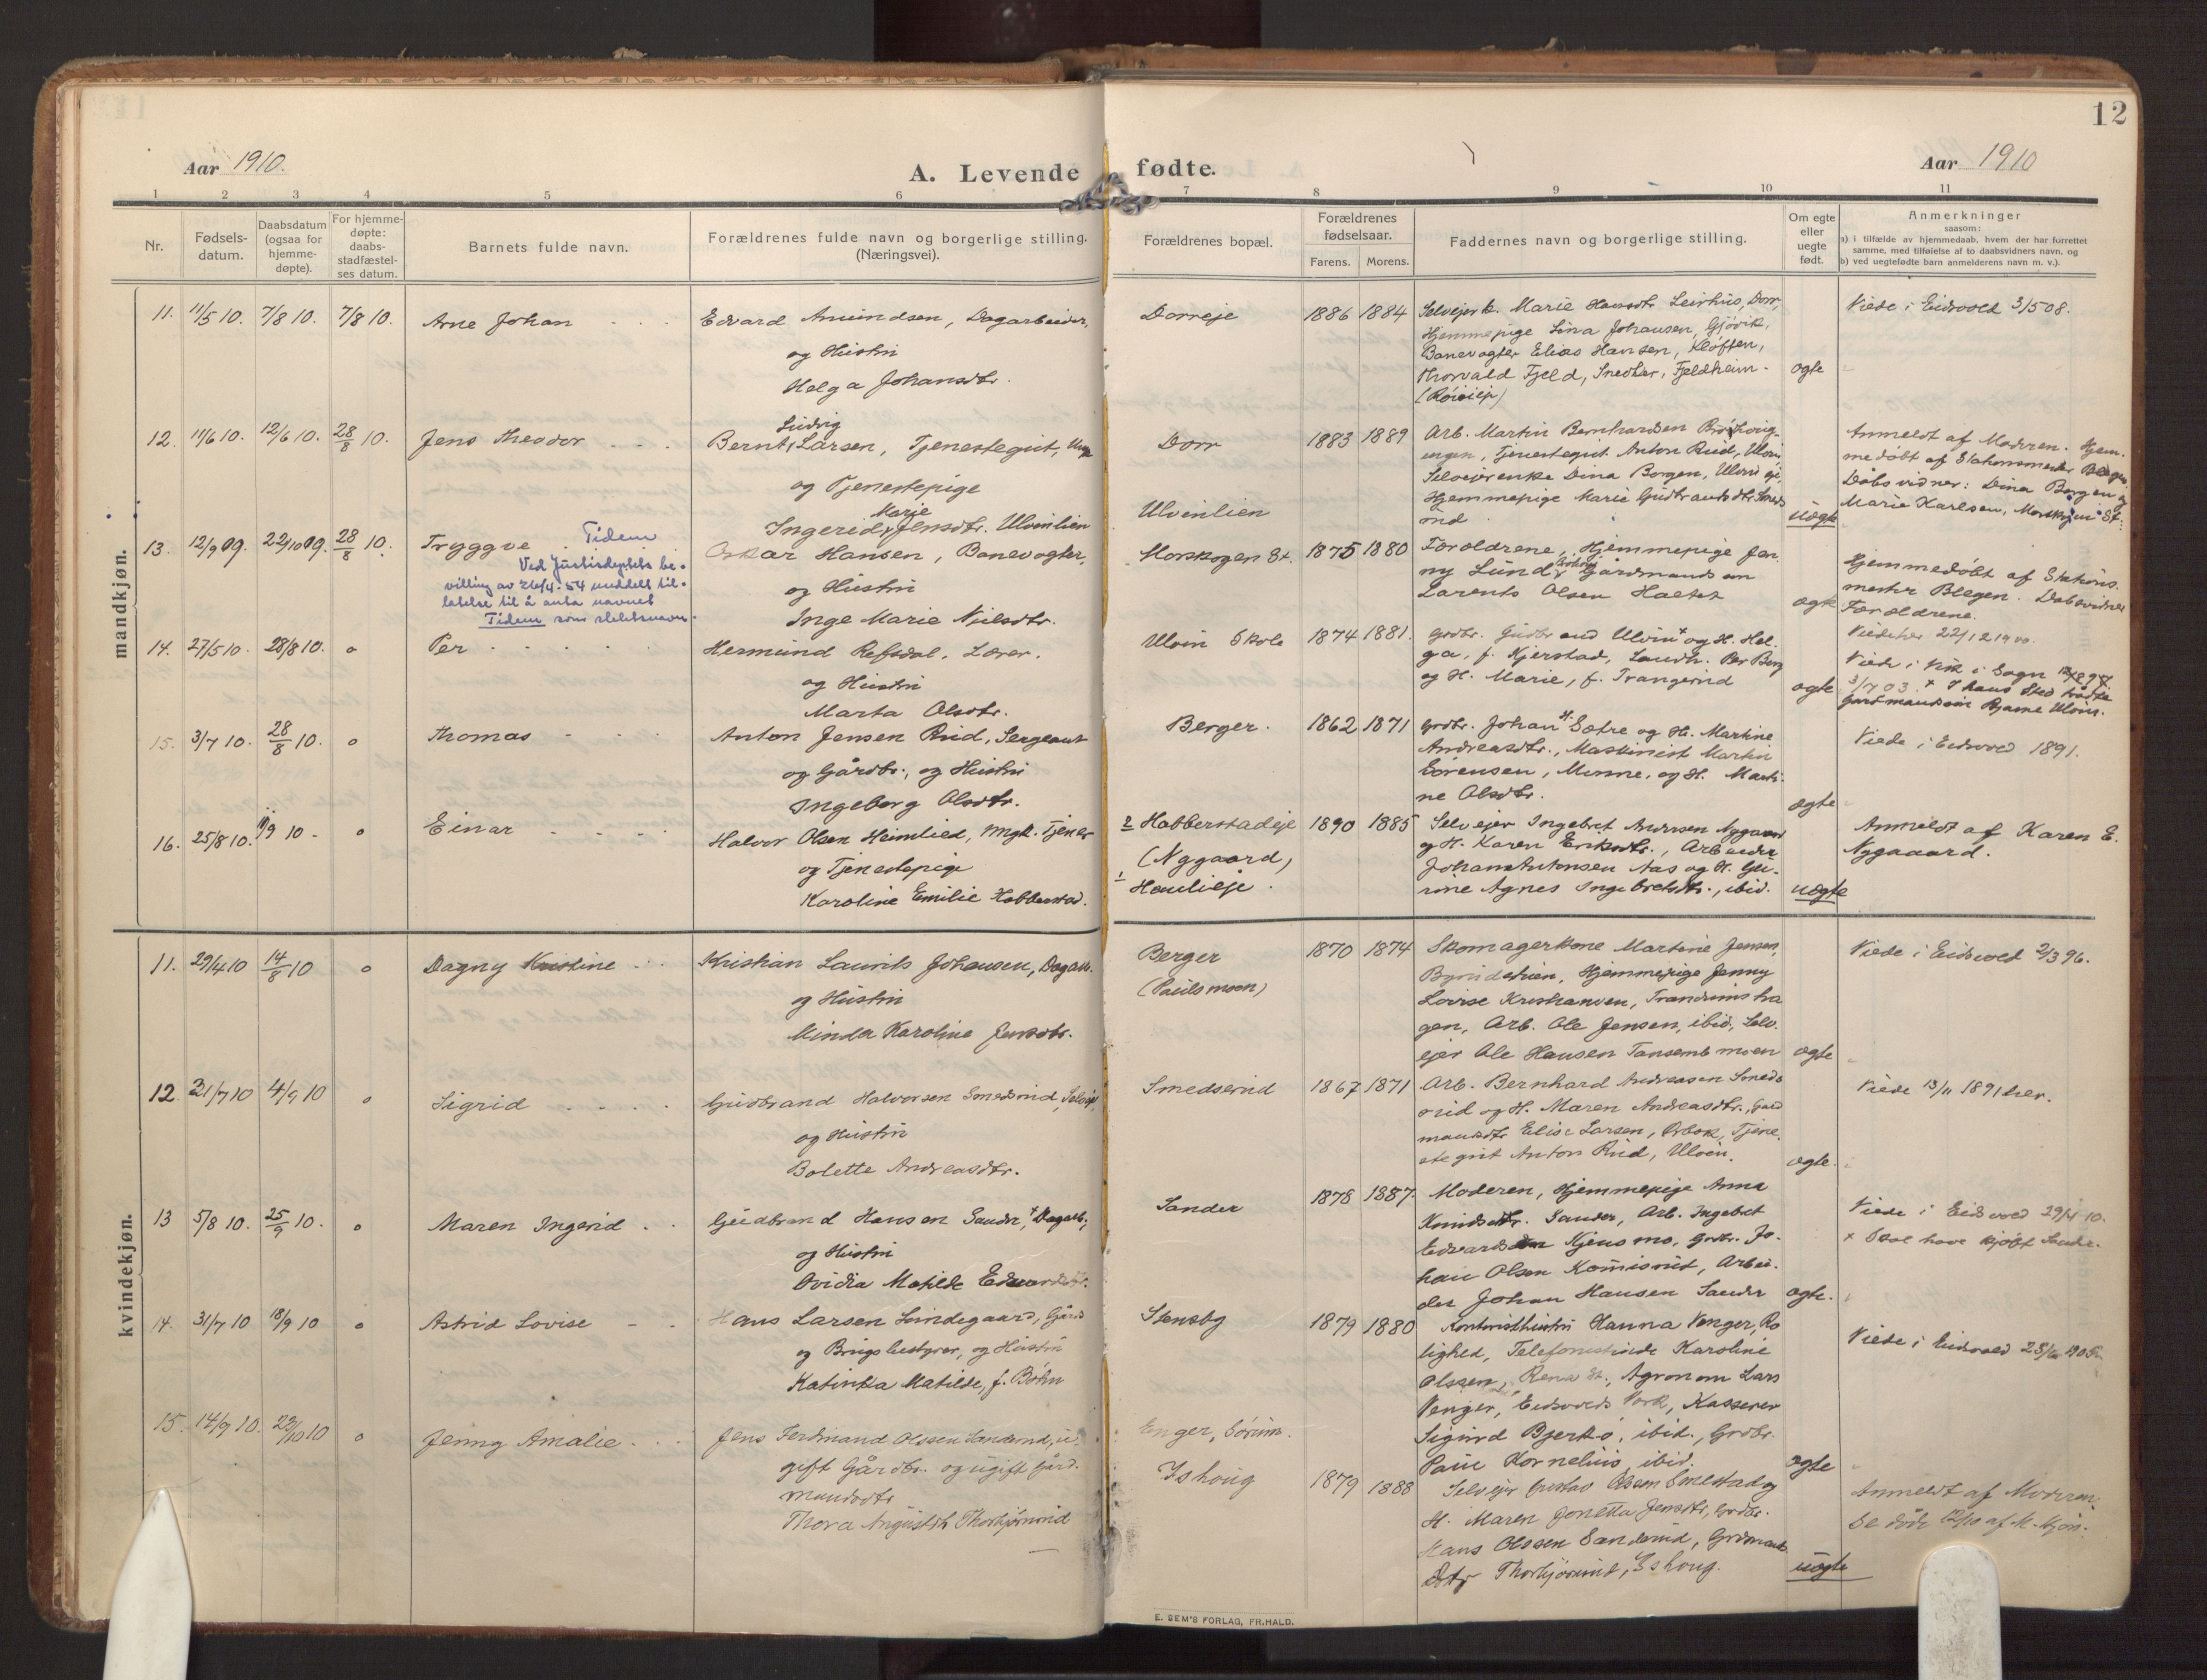 12
Aar 1910.
A. Levende fødte.
Aar 1910
1 2 3 4 5 6 7 8 9 10 11
Nr.
Fødsels-
datum.
Daabsdatum
(ogsaa for
hjemme-
døpte).
For hjemme-
døpte:
daabs-
stadfæstel-
ses datum.
Barnets fulde navn.
Forældrenes fulde navn og borgerlige stilling.
(Næringsvei).
Forældrenes bopæl.
Forældrenes
fødselsaar.
Farens. Morens.
Faddernes navn og borgerlige stilling.
Om egte
eller
uegte
født.
Anmerkninger
saasom:
a) i tilfælde av hjemmedaab, hvem der har forrettet
samme, med tilføielse af to daabsvidners navn, og
b) ved uegtefødte barn anmelderens navn m. v.).
mandkjøn.
11. 11/5 10. 7/8 10. 7/8 10. Arne Johan
Edvard Amundsen, Dagarbeider,
og Hustru
Helga Johansdtr.
Dorreje 1886 1884
Selvejerk. Marie Hansdtr. Leirhus, Dorr,
Hjemmepige Lina Johansen, Gjøvik,
Banevogter Elias Hansen, Kløften,
Thorvald Fjeld, Snedker, Fjeldheim.
ægte
Viede i Eidsvold 3/5 08.
12. 11/6 10. 12/6 10. 28/8 10. Jens Theodor
Ludvig
Bernt Larsen, Tjenestegut,
og Tjenestepige
Marie
Ingerid Jensdtr. Ulvinlien
Dorr 1883 1889
Ulvinlien
Arb. Martin Bernhardsen
Tjenestegut Anton Rud, Ulvin
Selvejerenke Dina Borgen, Ulvin eje,
Hjemmepige Marie Gudbrandsdtr. Smeds
rud
uægte
Anmeldt af Moderen. Hjem-
medøbt af Stationsmester Blegen
Dåbsvidner: Dina Borgen og
Marie Karlsen, Morskogen St.
13. 12/9 09. 22/10 09. 28/8 10. Tryggve Tidem
Ved Justisdeptets be-
villing av 26/4-54 meddelt til-
latelse til å anta navnet
Tidem som slektsnavn.
Oskar Hansen, Banevogter,
og Hustru
Inge Marie Nielsdtr.
Morskogen St. 1875 1880
Forældrene, Hjemmepige Jen-
ny Lund, Gårdmandsøn
Larents Olsen Haltet
ægte
Hjemmedøbt af Stations
mester Blegen. Dåbsvidner
Forældrene.
Viede her 22/12 1900.
14. 27/5 10. 28/8 10. o Per
Hermund Refsdal, Lærer.
og Hustru
Marta Olsdtr.
Ulvin Skole 1874 1881.
Grdbr. Gudbrand Ulvin + og H. Hel-
ga, f. Kjerstad, Landh. Per Berg
og H. Marie, f. Trangerud
ægte
Viede i Vik i Sogn
3/7 03. + I hans Sted trådte
Gardmandssøn Bjarne Ulvin.
15. 3/7 10. 28/8 10. o Thomas
Anton Jensen Rud, Sergeant
og Gårdbr., og Hustru
Ingeborg Olsdtr.
Berger. 1862 1871
Grdbr. Johan H. Sætre og H. Martine
Andreasdtr., Maskinist Martin
Sørensen, Minne, og H. Marti-
ne Olsdtr.
ægte
Viede i Eidsvold 1891.
16. 25/8 10. 11/9 10. o Einar
Halvor Olsen Heimlied, Ungk. Tjener
og Tjenestepige
Karoline Emilie Habberstad.
2 Habberstadeje 1890 1885
(Nygaard)
1 Haulieje.
Selvejer Ingebret Andersen Nygaard
og H. Karen Eriksdtr., Arbeider
Johan Antonsen Aas og H. Gu-
rine Agnes Ingebretsdtr., ibid.
uægte
Anmeldt af Karen E.
Nygaaard.
kvindekjøn.
11. 29/4 10 14/8 10 o Dagny Kristine
Kristian Laurits Johansen, Dagarb.
og Hustru
Minda Karoline Jensdtr.
Berger 1870 1874
(Paulsmoen)
Skomagerkone Martine Jensen,
Hjemmepige Jenny
Lovise Kristiansen, Trandumsha
gen, Arb. Ole Jensen, ibid, Selv-
ejer Ole Hansen Tansembmoen
ægte
Viede i Eidsvold 2/3 96.
12. 31/7 10 4/9 10 o Sigrid
Gudbrand Halvorsen Smedsrud, Selvej.
og Hustru
Bolette Andreasdtr.
Smedsrud 1867 1871
Arb. Bernhard Andreasen Smeds
rud og H. Maren Andreasdtr., Gård
mansdtr. Elise Larsen, Tjene-
stegut Anton Rud, Ulvin.
ægte.
Viede 13/11 1891 her.
13 5/8 10. 25/9 10. o Maren Ingerid
Gudbrand Hansen Sander, + Dagarb.,
og Hustru
Ovidia Matilde Edvardsdtr.
Sander 1878 1887.
Moderen, Hjemmepige Anna
Knudsdtr. Sander, Arb. Ingebret
Edvardsen Kjensmo, Grdbr. Jo-
han Olsen Komisrud, Arbei-
der Johan Hansen Sander
ægte.
Viede i Eidsvold 29/4 10.
x Skal have kjøbt Sander.
14. 31/7 10 18/9 10 o Astrid Lovise
Hans Larsen Lindegaard, Gård
og Brugsbestyrer, og Hustru
Katinka Matilde, f. Bøhn
Stensby 1879 1880
Kontoristhustru Hanna Venger, Ro
lighed, Telefonistinde Karoline
Olssen, Rena St., Agronom Lars
Venger, Eidsvolds Værk, Kasserer
Sigurd Bjerkø, ibid., Grdbr.
Paul Kornelius, ibid.
ægte
Viede i Eidsvold
15. 14/9 10. 23/10 10 o Jenny Amalie
Jens Ferdinand Olssen Sanderud, u-
gift Gårdbr. og ugift Gård-
mansdtr
Thora Augusta Thorbjørnrud
Enger, Sørum.
Ishoug 1879 1888
Selvejer Gustav Olsen Smestad og
H. Maren Jonetta Jensdtr., Grdbr.
Hans Olssen Sanderud, Grdmands
dtr Thorbjørnrud, Ishoug.
uægte
Anmeldt af Moderen
E. SEM'S FORLAG, FR.HALD.